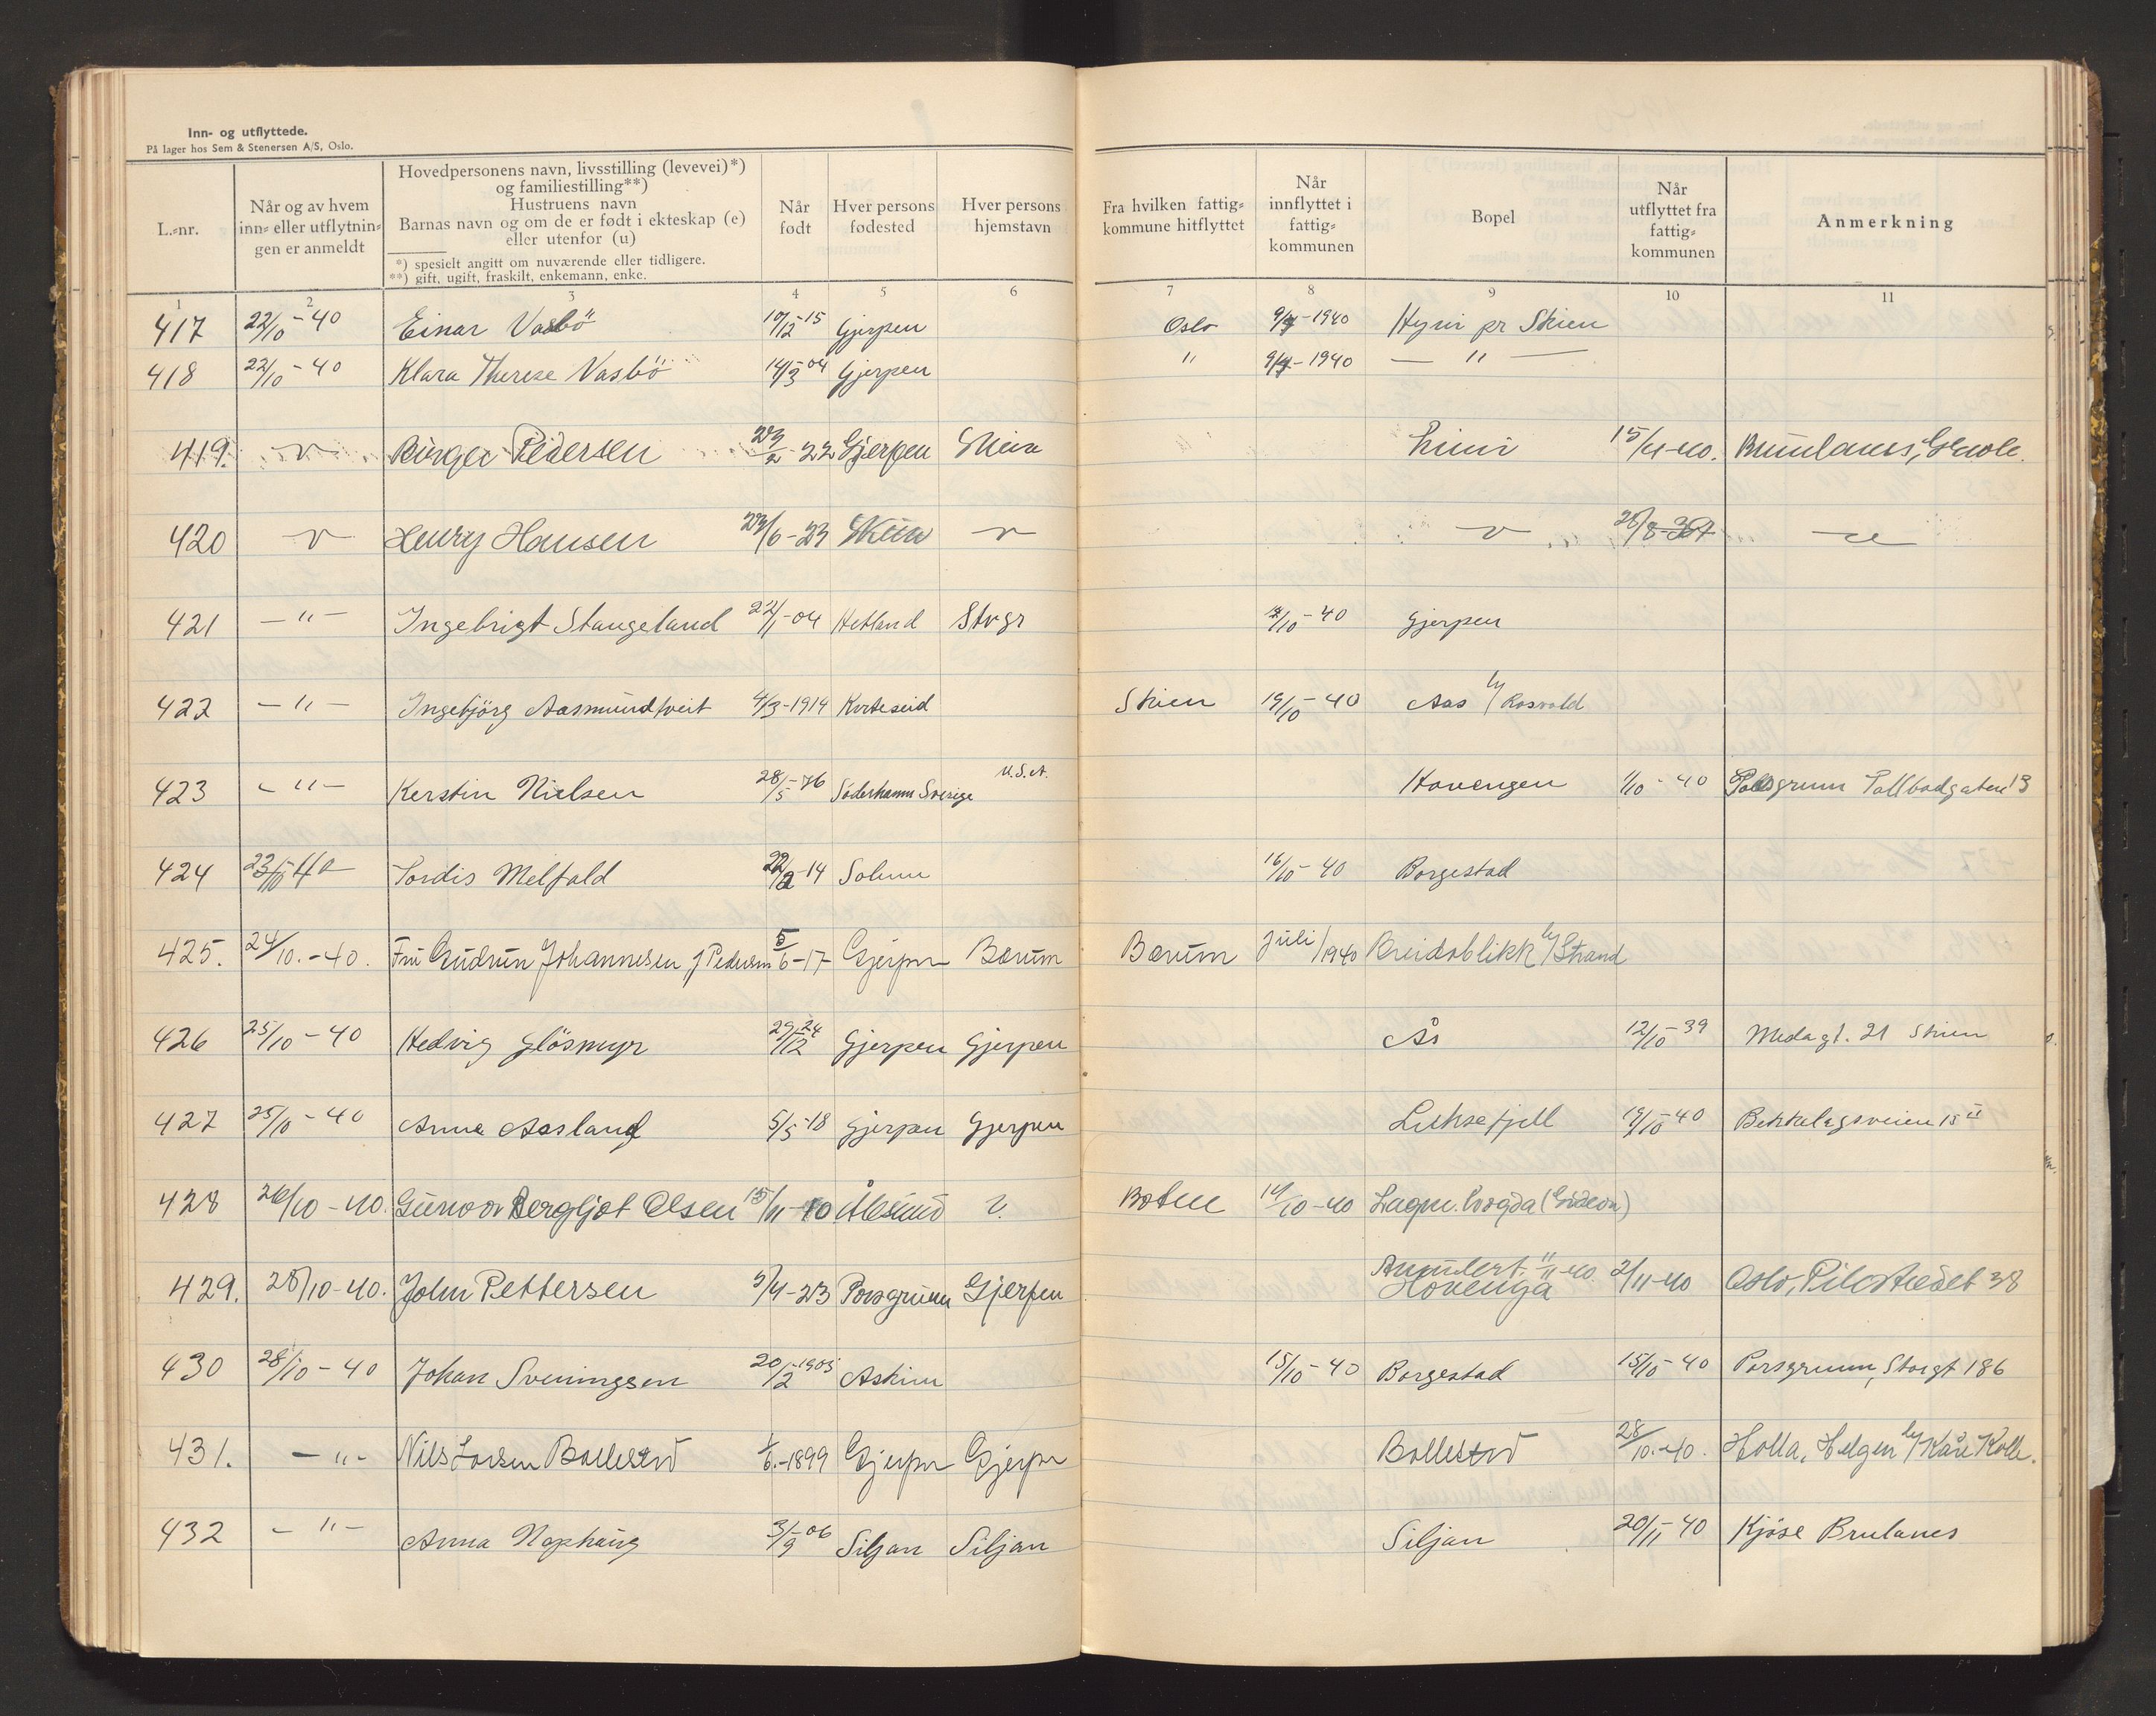 Inn- og utflyttede.
På lager hos Sem & Stenersen A/S, Oslo.
L.-nr.
Når og av hvem inn- eller utflytningen er anmeldt
Hovedpersonens navn, livsstilling (levevei)*)
og familiestilling**)
Hustruens navn
Barnas navn og om de er født i ekteskap (e)
eller utenfor (u)
*) spesielt angitt om nuværende eller tidligere.
**) gift, ugift, fraskilt, enkemann, enke.
Når født
Hver persons fødested
Hver persons hjemstavn
Fra hvilken fattig-kommune hitflyttet
Når innflyttet i fattig-kommunen
Bopel
Når utflyttet fra fattig-kommunen
Anmerkning
1 2 3 4 5 6 7 8 9 10 11
417 22/10-40 Einar Vasbö 10/12-15 Gjerpen Oslo 9/4-1940 Hyni pr Skien
418 22/10-40 Klara Therese Vasbö 14/3-04 Gjerpen " 9/4-1940 — " —
419. Birger Pedersen 23/2-22 Gjerpen Skien 15/4-40. Brunlanes,
420 Henry Hansen 23/6-23 Skien
421 — " — Ingebrigt Stangeland 22/1-04 Hetland Stvgr 7/10-40 Gjerpen
422 — " — Ingebjörg Aasmundtveit 4/3-1914 Kviteseid Skien 19/10-40 Aas v/ Rosvold
423 — " — Kerstin Nielsen 28/5-76 Söderhamn Sverige U.S.A. Hovengen 1/10-40 Porsgrunn Tollbodgaten 13
424 23/10-40 Tordis Melfald 22/2-14 Solum 16/10-40 Borgestad
425. 24/10.-40. Fru Gudrun Johannesen f Pedersen 5/6-17 Gjerpen Bærum Bærum Juli/1940 Breidablikk v/ Strand
426 25/10-40 Hedvig Glösmyr 29/12-24 Gjerpen Gjerpen Ås 12/10-39 Medagt. 21 Skien
427 25/10-40 Anna Aasland 5/5-18 Gjerpen Gjerpen Luksefjell 19/10-40 Bekkelagsveien 15 II
428 26/10-40. Gunvor Bergljot Olsen 15/11-10 Ålesund ?. Botne 14/10-40 (Gideon)
429. 28/10-40. John Pettersen 5/4-23 Porsgrunn Gjerpen Hovenga 2/11-40 Oslo, Pilestredet 38
430 28/10-40 Johan Sveningsen 20/2-1905 Askim 15/10-40 Borgestad 15/10-40 Porsgrunn, Storgt 186
431. — " — Nils Larsen Bollestad 1/6.-1899 Gjerpen Gjerpen Bollestad 28/10.-40. Holla, Helgen v/ Kåre Kolle.
432 — " — Anna Nophaug 3/9-06 Siljan Siljan Siljan 20/11-40 Kjöse Brulanes